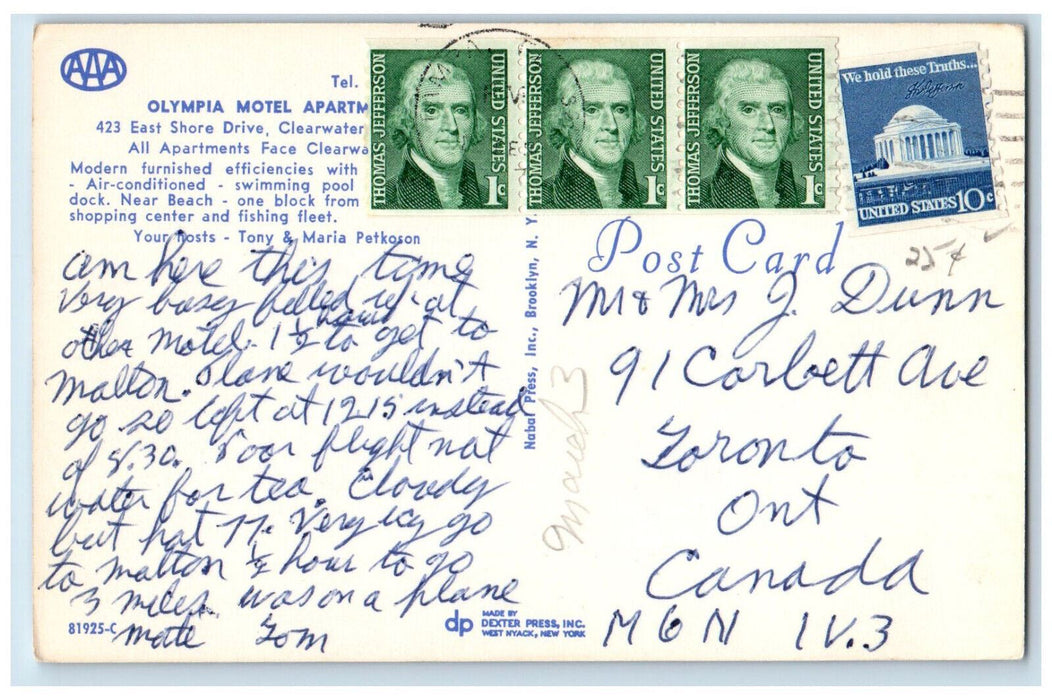 AAA
Tel.
OLYMPIA MOTEL APARTM
423 East Shore Drive, Clearwater
All Apartments Face Clearwa
Modern furnished efficiencies with
- Air-conditioned - swimming pool
dock. Near Beach - one block from
shopping center and fishing fleet.
Your hosts - Tony & Maria Petkoson
THOMAS JEFFERSON
UNITED STATES
1c
THOMAS JEFFERSON
UNITED STATES
1c
THOMAS JEFFERSON
UNITED STATES
1c
We hold these Truths...
UNITED STATES 10c
25¢
am here this time
Very busy filled up at
other Motel. 1½ hours to get to
Malton. Plane wouldn't
go so left at 1215 instead
of 8.30. Poor flight not
water for tea. Cloudy
but hot 77. Very icy go
to Malton ½ hour to go
3 miles. was on a plane
mate Tom
81925-C
Nabar Press, Inc., Brooklyn, N. Y.
March 3
dp MADE BY
DEXTER PRESS, INC.
WEST NYACK, NEW YORK
Post Card
Mr & Mrs J. Dunn
91 Corbett Ave
Toronto
Ont
Canada
M6N 1V.3